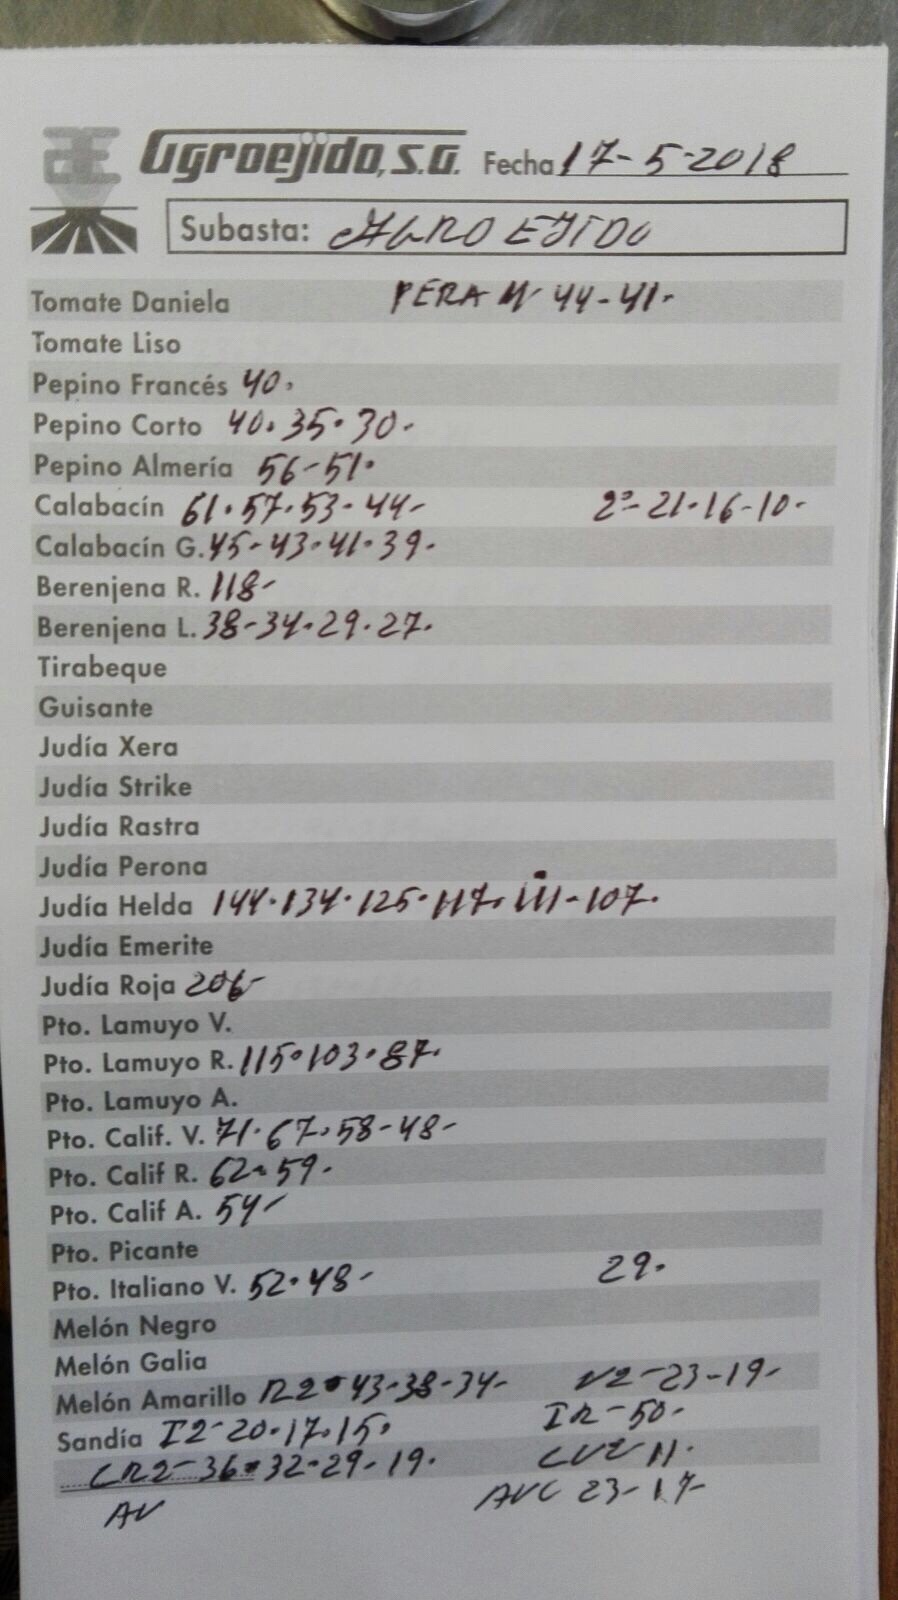 Agroejido, S.A. Fecha 17-5-2018
Subasta: AGROEJIDO
Tomate Daniela PERA 44-41-
Tomate Liso
Pepino Francés 40.
Pepino Corto 40.35.30-
Pepino Almería 56-51.
Calabacín 61.57.53-44- 2ª-21.16-10-
Calabacín G. 45-43.41.39.
Berenjena R. 118-
Berenjena L. 38-34.29.27.
Tirabeque
Guisante
Judía Xera
Judía Strike
Judía Rastra
Judía Perona
Judía Helda 144.134.125.117.111-107.
Judía Emerite
Judía Roja 206-
Pto. Lamuyo V.
Pto. Lamuyo R. 115.103.87.
Pto. Lamuyo A.
Pto. Calif. V. 71.67.58-48-
Pto. Calif R. 62-59-
Pto. Calif A. 54-
Pto. Picante
Pto. Italiano V. 52.48- 29.
Melón Negro
Melón Galia
Melón Amarillo 43-38-34- 23-19-
Sandía 20.17.15. 50-
36.32.29-19. 11.
AV AVC 23-17-